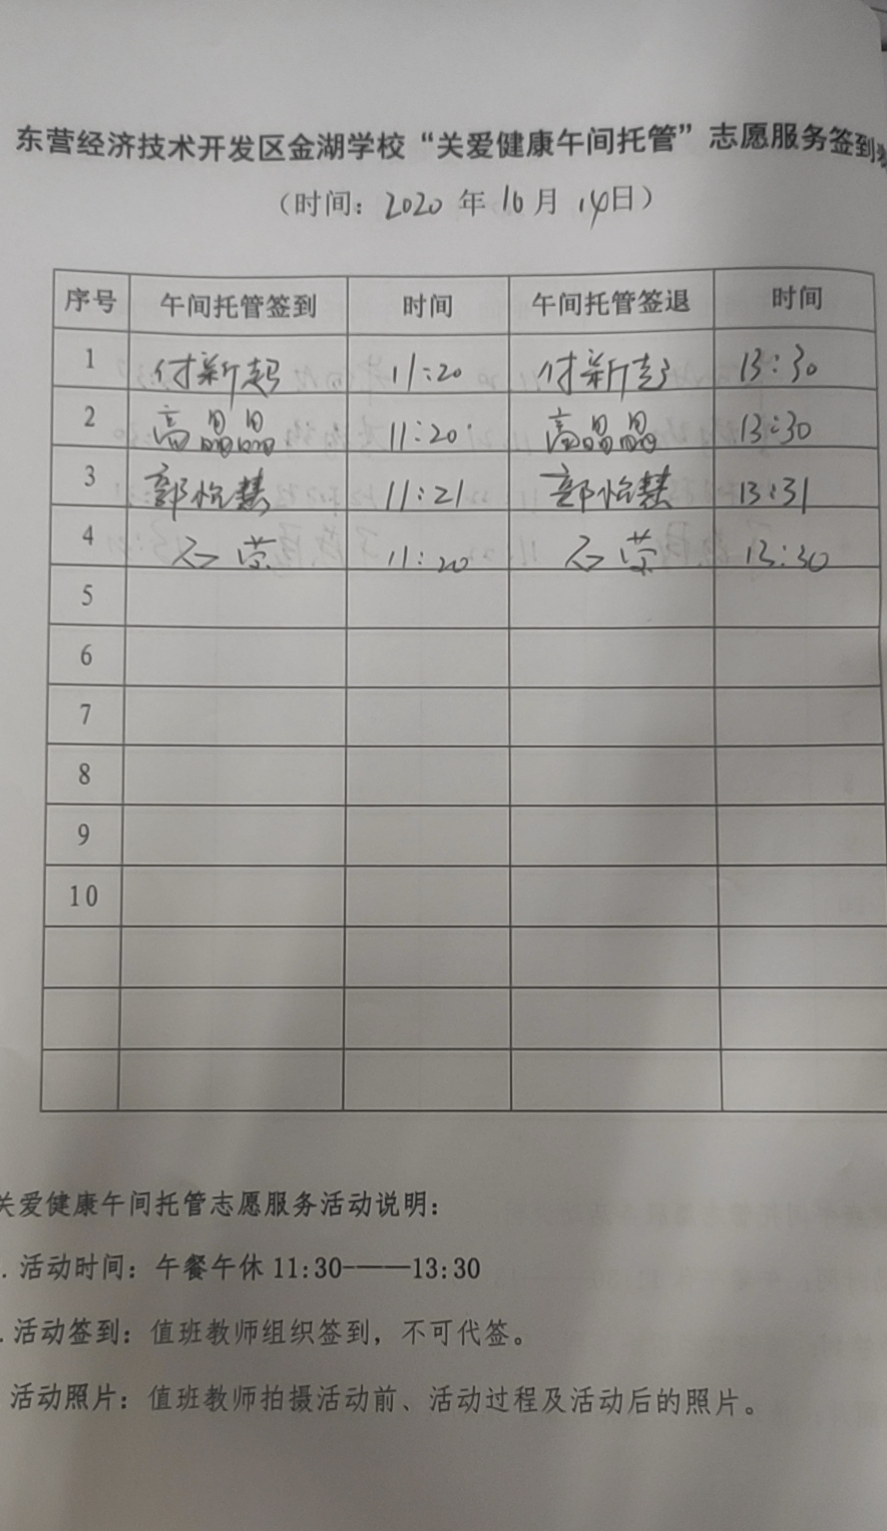 东营经济技术开发区金湖学校“关爱健康午间托管”志愿服务签到表
（时间：2020 年 10 月 14日）
序号 午间托管签到 时间 午间托管签退 时间
1 付新起 11:20 付新起 13:30
2 高晶晶 11:20 高晶晶 13:30
3 郭怡慧 11:21 郭怡慧 13:31
4 石荣 11:20 石荣 13:30
5
6
7
8
9
10
关爱健康午间托管志愿服务活动说明：
. 活动时间：午餐午休 11:30——13:30
. 活动签到：值班教师组织签到，不可代签。
活动照片：值班教师拍摄活动前、活动过程及活动后的照片。